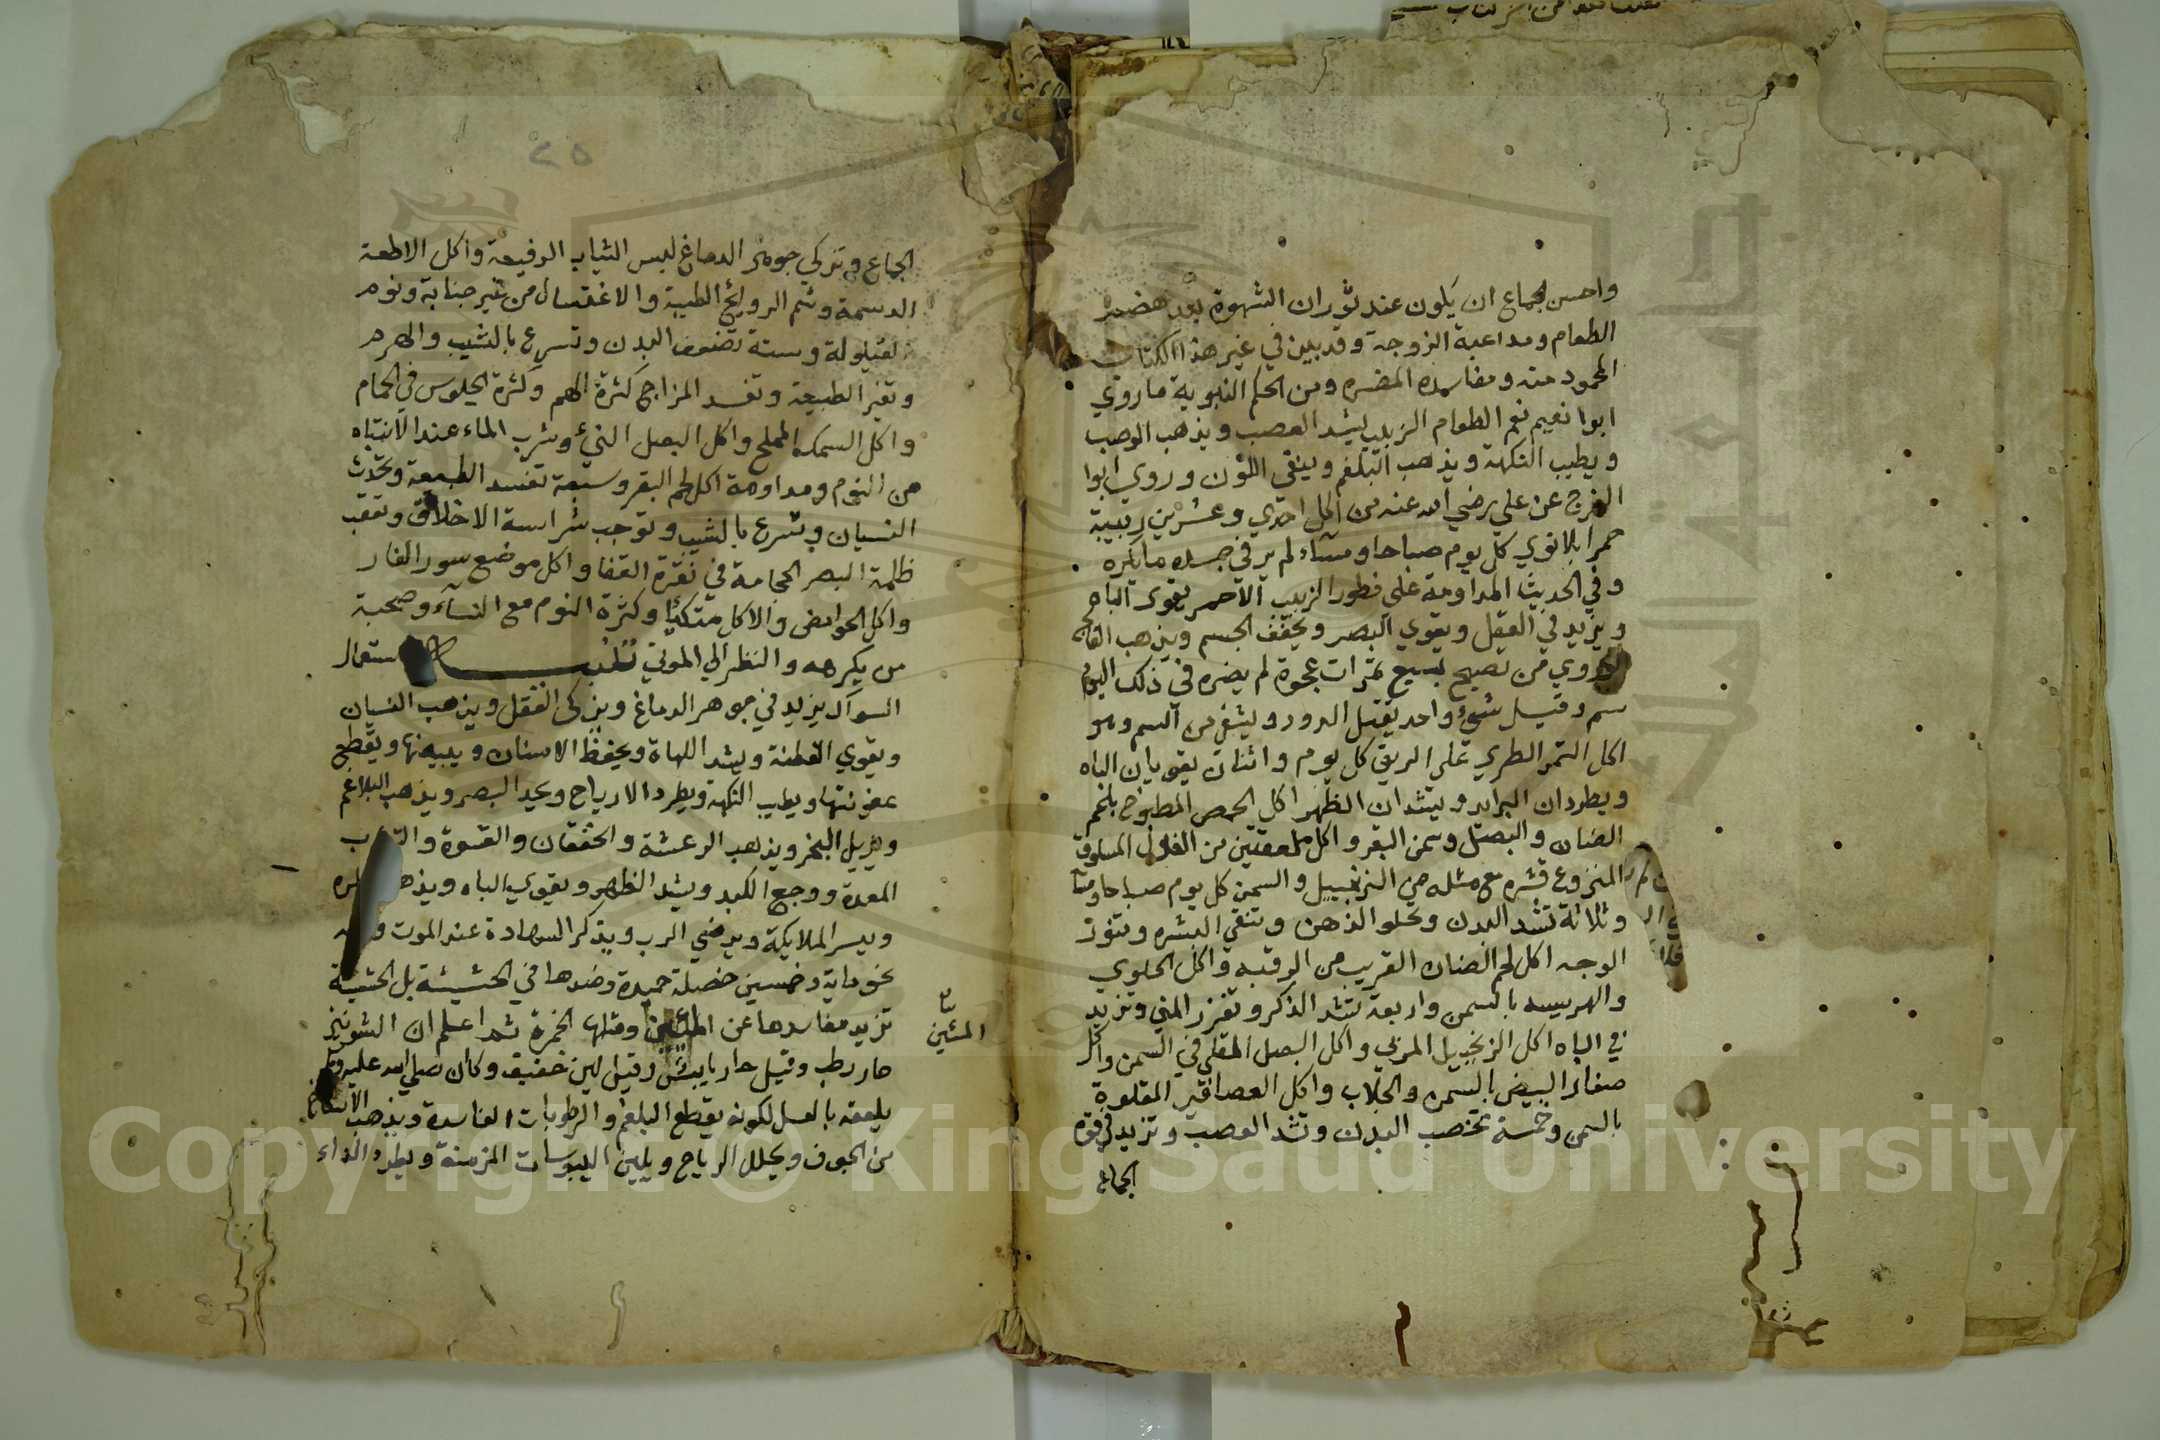 واحسن الجماع ان يكون عند ثوران الشهوة بعد هضم
الطعام ومداعبة الزوجة وقد بين في غير هذا الكتاب
المحمود منه ومفاسده المضره ومن الحكم النبوية ما روي
ابوا نعيم نعم الطعام الزبيب يشد العصب ويذهب الوصب
ويطيب النكهة ويذهب البلغم وينقي اللون وروي ابوا
الفرج عن علي رضي الله عنه من اكل احدي وعشرين زبيبة
حمرا بلا نوي كل يوم صباحا ومساء لم ير في جسده ما يكره
وفي الحديث المداومة علي فطور الزبيب الاحمر يقوي الباه
ويزيد في العقل ويقوي البصر ويخفف الجسم ويذهب الفالج
وروي من تصبح بسبع تمرات عجوة لم يضره في ذلك اليوم
سم وقيل شيء واحد يقتل الدود ويشفي من السم وهو
اكل التمر الطري علي الريق كل يوم واثنان يقويان الباه
ويطردان البرايد ويشدان الظهر اكل الحمص المطبوخ بلحم
الضان والبصل وسمن البقر واكل ملعقتين من الفول المسلوق
المنزوع قشره مع مثله من الزنجبيل والسمن كل يوم صباحا ومسا
وثلاثة تشد البدن وتجلو الذهن وتنقي البشره وتنور
الوجه اكل لحم الضان القريب من الرقبه واكل الحلوي
والهريسه بالسمن واربعة تشد الذكر وتغزر المني وتزيد
في الباه اكل الزنجبيل المربي واكل البصل المقلي في السمن واكل
صفار البيض بالسمن والجلاب واكل العصافير المقلوة
بالسمن وخمسة تخصب البدن وتشد العصب وتزيد في قوة
الجماع
٢٥
الجماع وتزكي جوهر الدماغ لبس الثياب الرفيعة واكل الاطعمة
الدسمة وشم الروايح الطيبة والاغتسال من غير جنابة ونوم
القيلولة وستة تضعف البدن وتسرع بالشيب والهرم
وتغير الطبيعة وتفسد المزاج كثرة الهم وكثرة الجلوس في الحمام
واكل السمك المملح واكل البصل النيء وشرب الماء عند الانتباه
من النوم ومداومة اكل لحم البقر وسبعة تفسد الطبيعة وتحدث
النسيان وتسرع بالشيب وتوجب شراسة الاخلاق وتعقب
ظلمة البصر الحجامة في نقرة القفا واكل موضع سور الفار
واكل الحوامض والاكل متكئا وكثرة النوم مع النساء وصحبة
من يكرهه والنظر الي الموتي تنبيه استعمال
السواك يزيد في جوهر الدماغ ويزكي العقل ويذهب النسيان
ويقوي الفطنة ويشد اللهاة ويحفظ الاسنان ويبيضها ويقطع
عفونتها ويطيب النكهة ويطرد الارياح ويحد البصر ويذهب البلاغم
ويزيل البخر ويذهب الرعشة والخفقان والقسوة
المعدة ووجع الكبد ويشد الظهر ويقوي الباه
ويسر الملايكة ويرضي الرب ويذكر الشهادة عند الموت
نحو ماية وخمسين خصلة حميدة وضدها في الحشيشة بل الحشيشة
تزيد مفاسدها عن ومثلها الخمرة ثم اعلم ان الشونيز
المئين
حار رطب وقيل حار يابس وقيل لين خفيف وكان صلي الله عليه وسلم
يلعقه بالعسل لكونه يقطع البلغم والرطوبات الفاسدة ويذهب
من الجوف ويحلل الرياح ويلين اليبوسات المزمنة ويطرد الداء
Copyright © King Saud University